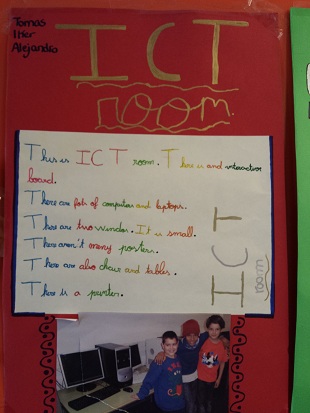 Tomas
Iker
Alejandro
ICT
room.
This is ICT room. There is and interactive
board.
There are lots of computer and laptops.
There are two window. It is small.
There aren't meny posters.
There are also chair and tables.
There is a printer.
ICT
room